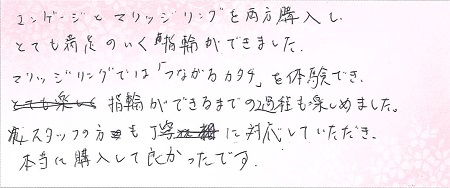 エンゲージとマリッジリングを両方購入し、
とても満足のいく指輪ができました。
マリッジリングでは「つながるカタチ」を体験でき、
とても楽しく 指輪ができるまでの過程も楽しめました。
スタッフの方も丁寧に対応していただき、
本当に購入して良かったです。